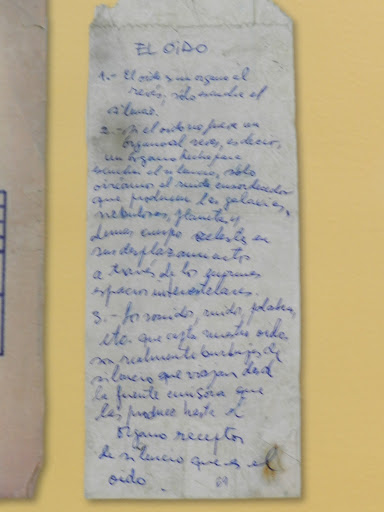 EL OIDO
1.- El oido es un organo al
revés, sólo escucha el
silencio.
2.- Si el oido no fuese un
órgano al reves, es decir,
un órgano hecho para
escuchar el silencio, sólo
oiriamos el ruido ensordecedor
que producen las galaxias,
nebulosas, planetas y
demas cuerpos celestes en
sus desplazamientos
a través de los enormes
espacios interestelares.
3.- Los sonidos, ruidos, palabras,
etc. que capta nuestro oido,
son realmente burbujas de
silencio que viajan desde
la fuente emisora que
las produce hasta el
órgano receptor
de silencio que es el
oido.